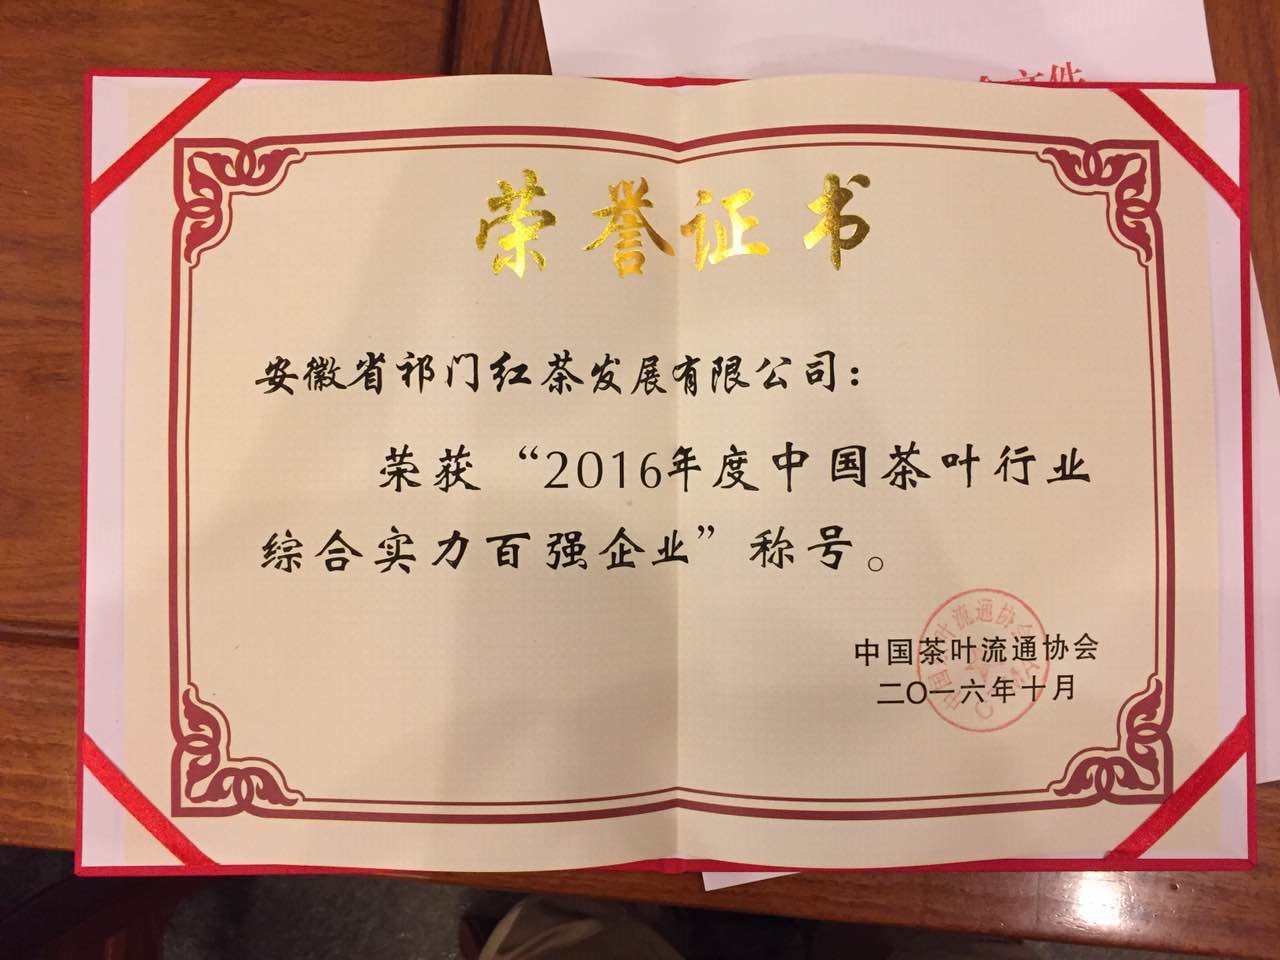 文件
荣誉证书
安徽省祁门红茶发展有限公司：
荣获“2016年度中国茶叶行业
综合实力百强企业”称号。
中国茶叶流通协会
二〇一六年十月
中国茶叶流通协会